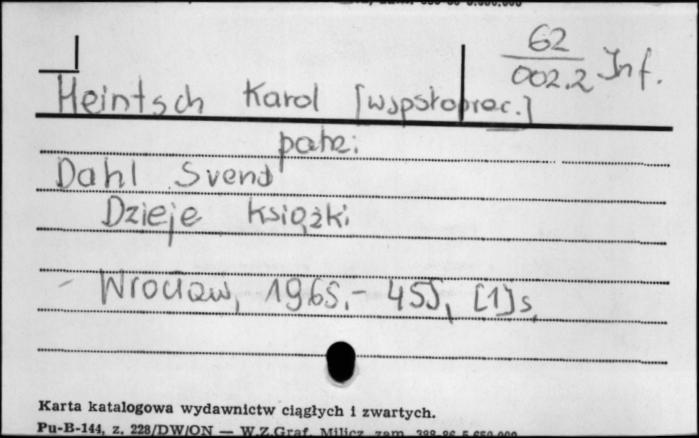 62
002.2 Inf.
Heintsch Karol [współprac.]
patrz:
Dahl Svend
Dzieje książki
- Wrocław, 1965. - 455, [1] s.
Karta katalogowa wydawnictw ciągłych i zwartych.
Pu-B-144, z. 228/DW/ON — W.Z.Graf. Milicz zam.